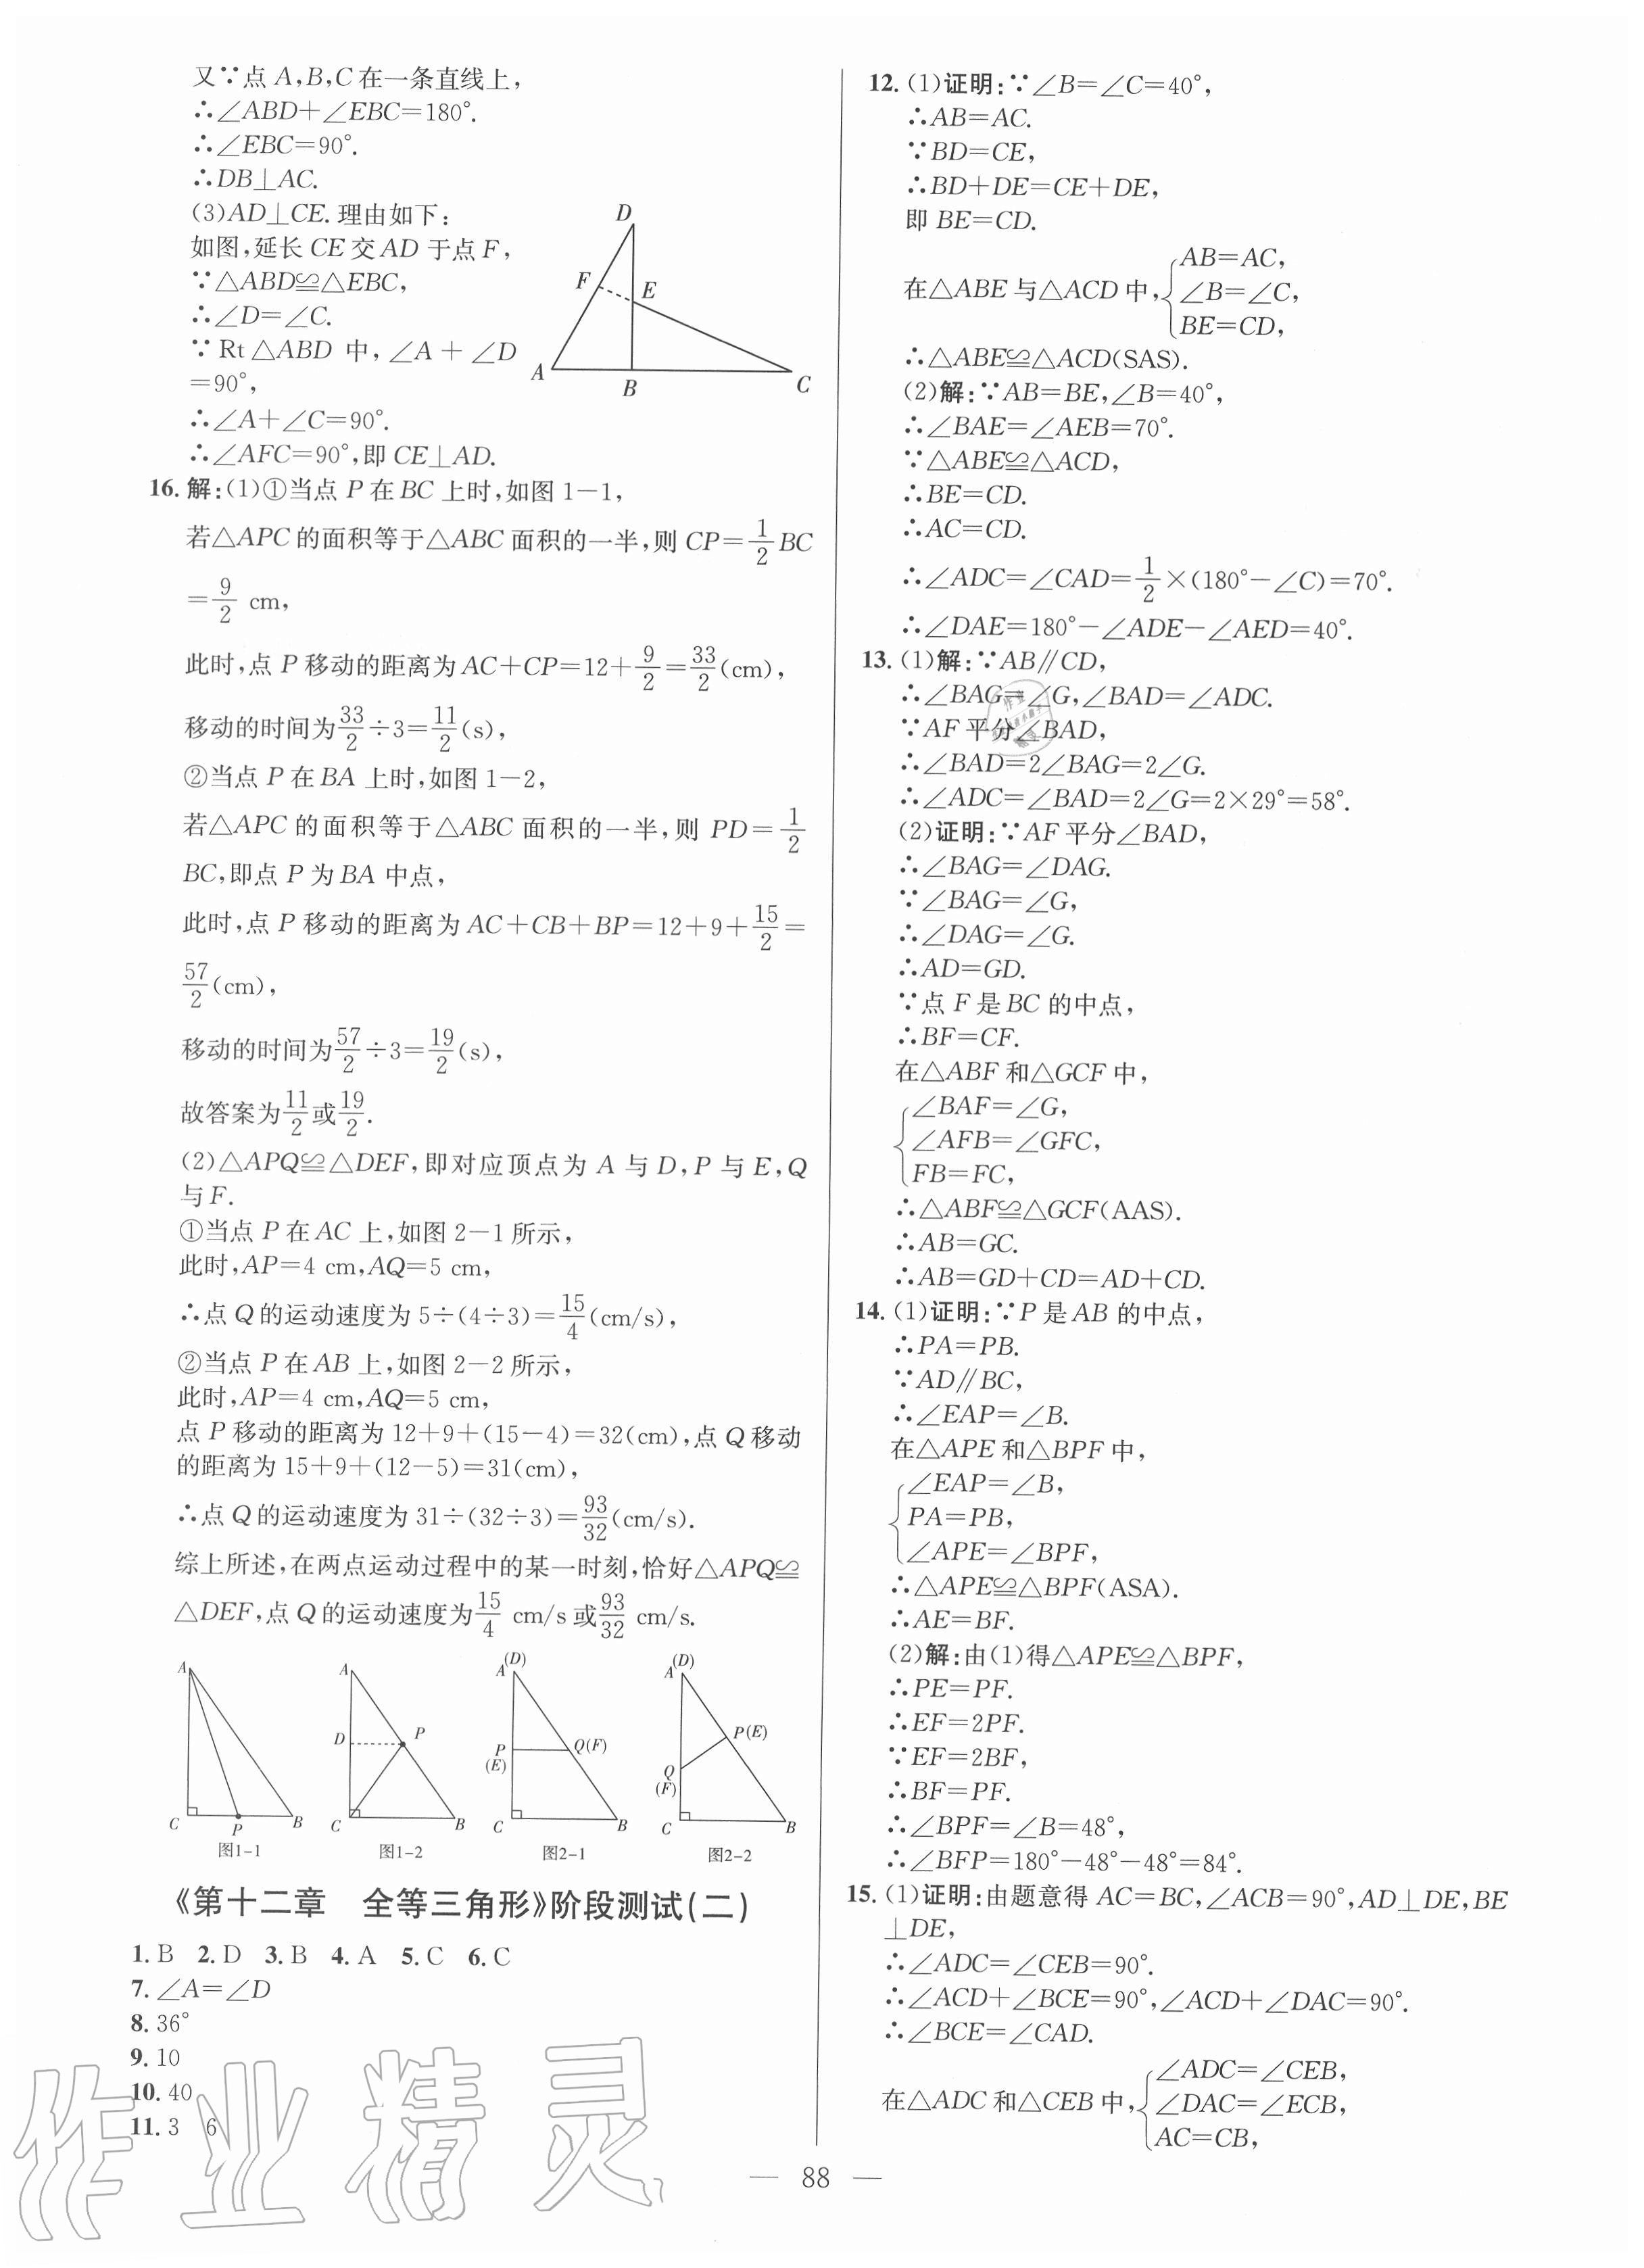 又∵点A,B,C在一条直线上,
∴∠ABD+∠EBC=180°.
∴∠EBC=90°.
∴DB⊥AC.
(3)AD⊥CE.理由如下:
如图,延长CE交AD于点F,
∵△ABD≌△EBC,
∴∠D=∠C.
∵Rt△ABD中,∠A+∠D
=90°,
∴∠A+∠C=90°.
∴∠AFC=90°,即CE⊥AD.
D
F
E
A
B
C
16.解:(1)①当点P在BC上时,如图1-1,
若△APC的面积等于△ABC面积的一半,则CP=1/2BC
=9/2 cm,
此时,点P移动的距离为AC+CP=12+9/2=33/2(cm),
移动的时间为33/2÷3=11/2(s),
②当点P在BA上时,如图1-2,
若△APC的面积等于△ABC面积的一半,则PD=1/2
BC,即点P为BA中点,
此时,点P移动的距离为AC+CB+BP=12+9+15/2=
57/2(cm),
移动的时间为57/2÷3=19/2(s),
故答案为11/2或19/2.
(2)△APQ≌△DEF,即对应顶点为A与D,P与E,Q
与F.
①当点P在AC上,如图2-1所示,
此时,AP=4 cm,AQ=5 cm,
∴点Q的运动速度为5÷(4÷3)=15/4(cm/s),
②当点P在AB上,如图2-2所示,
此时,AP=4 cm,AQ=5 cm,
点P移动的距离为12+9+(15-4)=32(cm),点Q移动
的距离为15+9+(12-5)=31(cm),
∴点Q的运动速度为31÷(32÷3)=93/32(cm/s).
综上所述,在两点运动过程中的某一时刻,恰好△APQ≌
△DEF,点Q的运动速度为15/4 cm/s或93/32 cm/s.
A
C
P
B
图1-1
A
D
P
C
B
图1-2
A(D)
P(E)
Q(F)
C
B
图2-1
A(D)
P(E)
Q(F)
C
B
图2-2
《第十二章 全等三角形》阶段测试(二)
1.B 2.D 3.B 4.A 5.C 6.C
7.∠A=∠D
8.36°
9.10
10.40
11.3 6
12.(1)证明:∵∠B=∠C=40°,
∴AB=AC.
∵BD=CE,
∴BD+DE=CE+DE,
即BE=CD.
在△ABE与△ACD中,{AB=AC,
∠B=∠C,
BE=CD,
∴△ABE≌△ACD(SAS).
(2)解:∵AB=BE,∠B=40°,
∴∠BAE=∠AEB=70°.
∵△ABE≌△ACD,
∴BE=CD.
∴AC=CD.
∴∠ADC=∠CAD=1/2×(180°-∠C)=70°.
∴∠DAE=180°-∠ADE-∠AED=40°.
13.(1)解:∵AB∥CD,
∴∠BAG=∠G,∠BAD=∠ADC.
∵AF平分∠BAD,
∴∠BAD=2∠BAG=2∠G.
∴∠ADC=∠BAD=2∠G=2×29°=58°.
(2)证明:∵AF平分∠BAD,
∴∠BAG=∠DAG.
∵∠BAG=∠G,
∴∠DAG=∠G.
∴AD=GD.
∵点F是BC的中点,
∴BF=CF.
在△ABF和△GCF中,
{∠BAF=∠G,
∠AFB=∠GFC,
FB=FC,
∴△ABF≌△GCF(AAS).
∴AB=GC.
∴AB=GD+CD=AD+CD.
14.(1)证明:∵P是AB的中点,
∴PA=PB.
∵AD∥BC,
∴∠EAP=∠B.
在△APE和△BPF中,
{∠EAP=∠B,
PA=PB,
∠APE=∠BPF,
∴△APE≌△BPF(ASA).
∴AE=BF.
(2)解:由(1)得△APE≌△BPF,
∴PE=PF.
∴EF=2PF.
∵EF=2BF,
∴BF=PF.
∴∠BPF=∠B=48°,
∴∠BFP=180°-48°-48°=84°.
15.(1)证明:由题意得AC=BC,∠ACB=90°,AD⊥DE,BE
⊥DE,
∴∠ADC=∠CEB=90°.
∴∠ACD+∠BCE=90°,∠ACD+∠DAC=90°.
∴∠BCE=∠CAD.
在△ADC和△CEB中,{∠ADC=∠CEB,
∠DAC=∠ECB,
AC=CB,
作业精灵
— 88 —